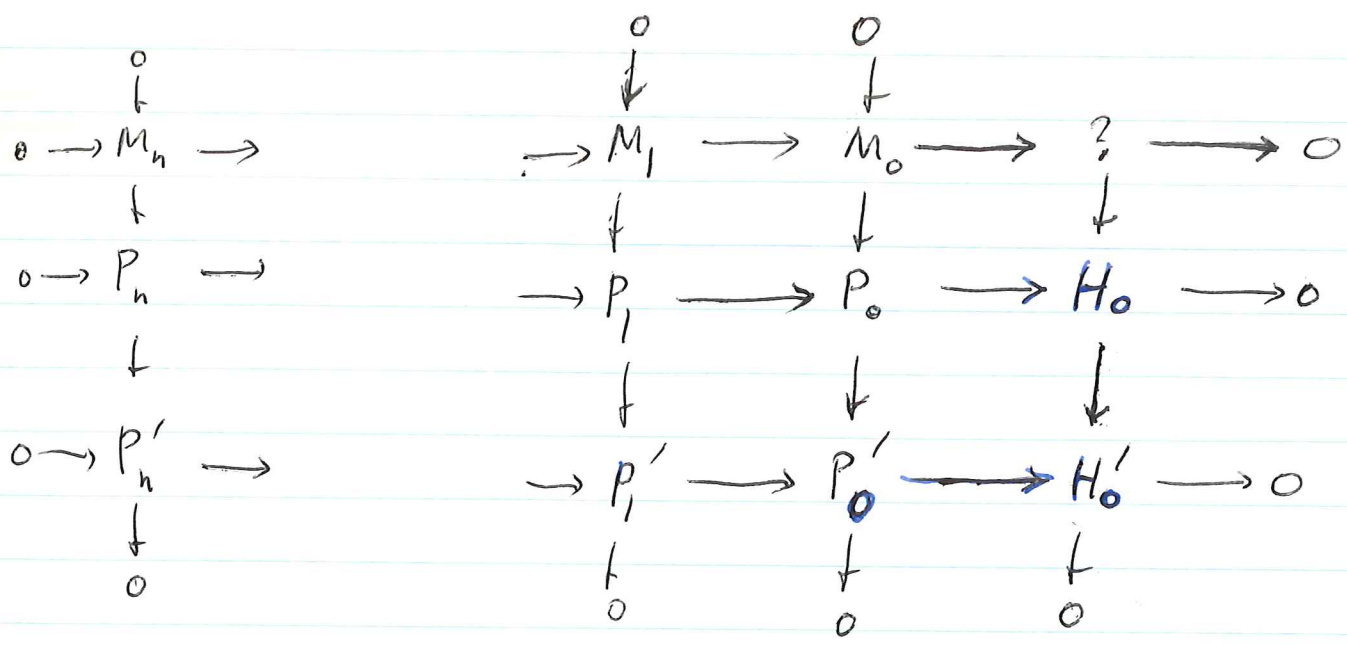 0 0 0
0 → Mₙ → → M₁ → M₀ → ? → 0
0 → Pₙ → → P₁ → P₀ → H₀ → 0
0 → Pₙ′ → → P₁′ → P₀′ → H₀′ → 0
0 0 0 0